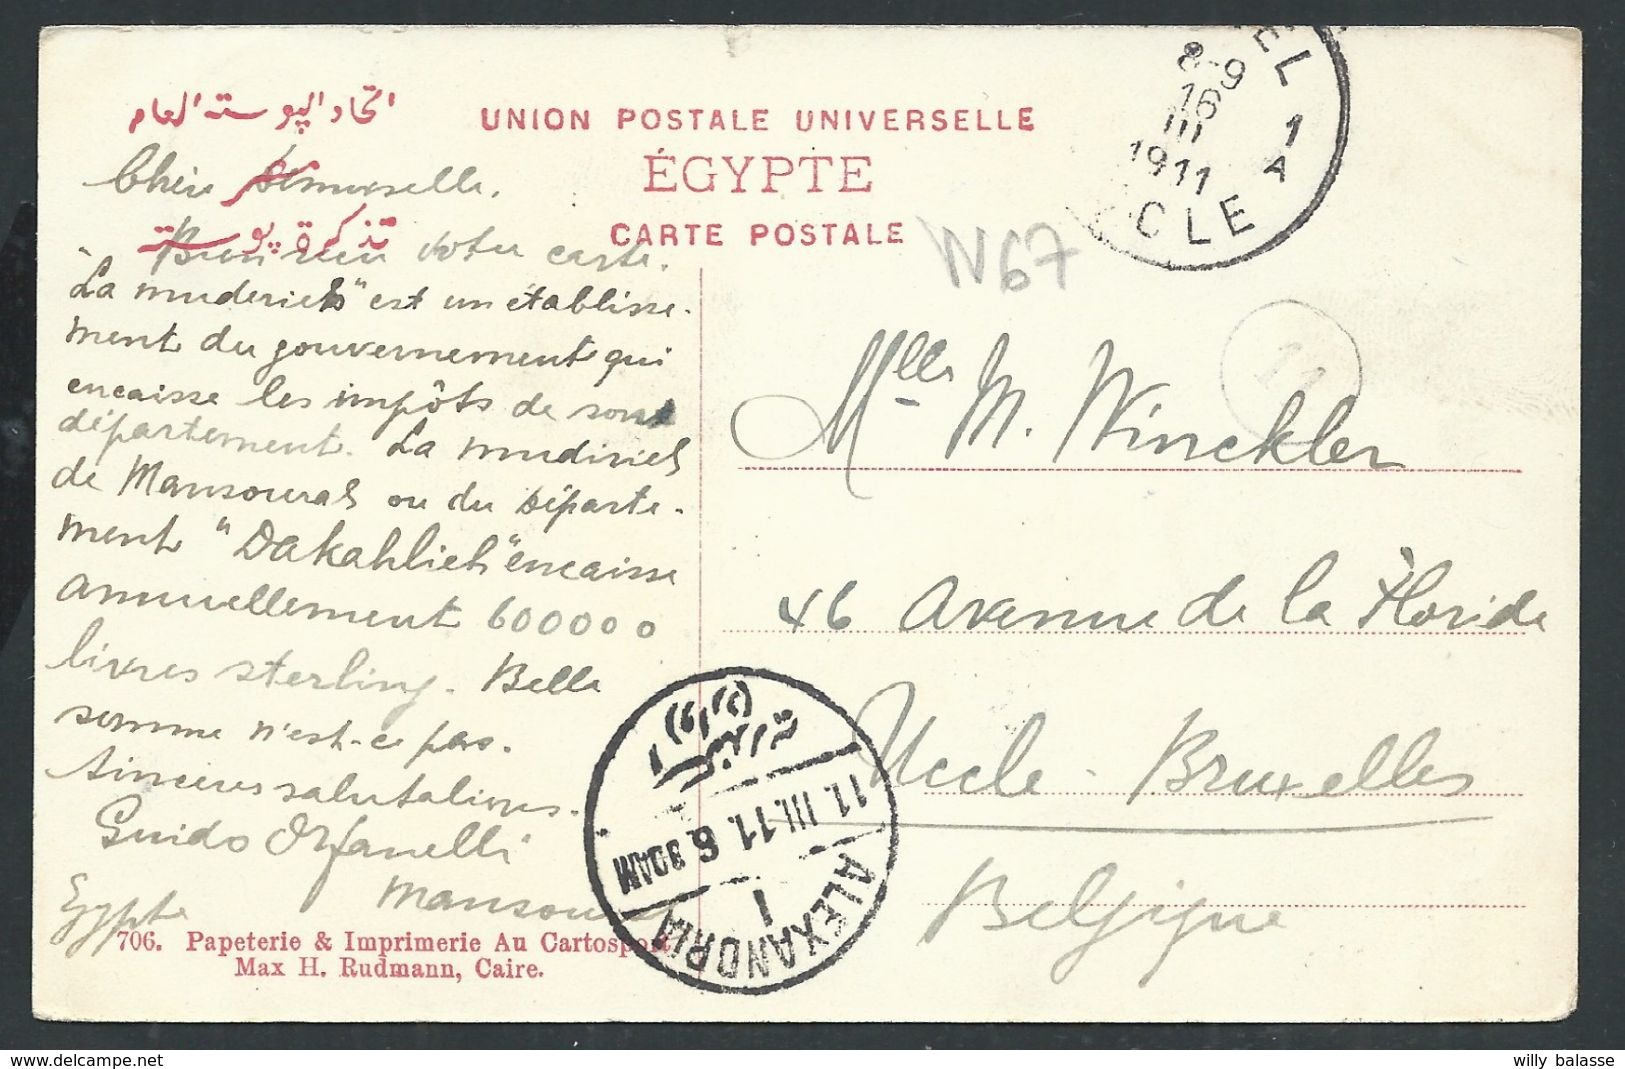 اتحاد البوستة العام
UNION POSTALE UNIVERSELLE
ÉGYPTE
CARTE POSTALE
تذكرة بوستة
W67
8-9
16
III
1911
EL 1
A
CLE
11
Chère Demoiselle.
Bien reçu votre carte.
"La muderieh" est un établisse-
ment du gouvernement qui
encaisse les impôts de son
département. La mudirieh
de Mansourah ou du départe-
ment "Dakahlieh" encaisse
annuellement 600000
livres sterling. Belle
somme n'est-ce pas.
Sincères salutations.
Guido Orfanelli
Mansourah
Egypte
Mlle M. Winckler
46 Avenue de la Floride
Uccle - Bruxelles
Belgique
11.III.11. 6 30AM
ALEXANDRIA
1
706. Papeterie & Imprimerie Au Cartosport
Max H. Rudmann, Caire.
www.delcampe.net
willy balasse